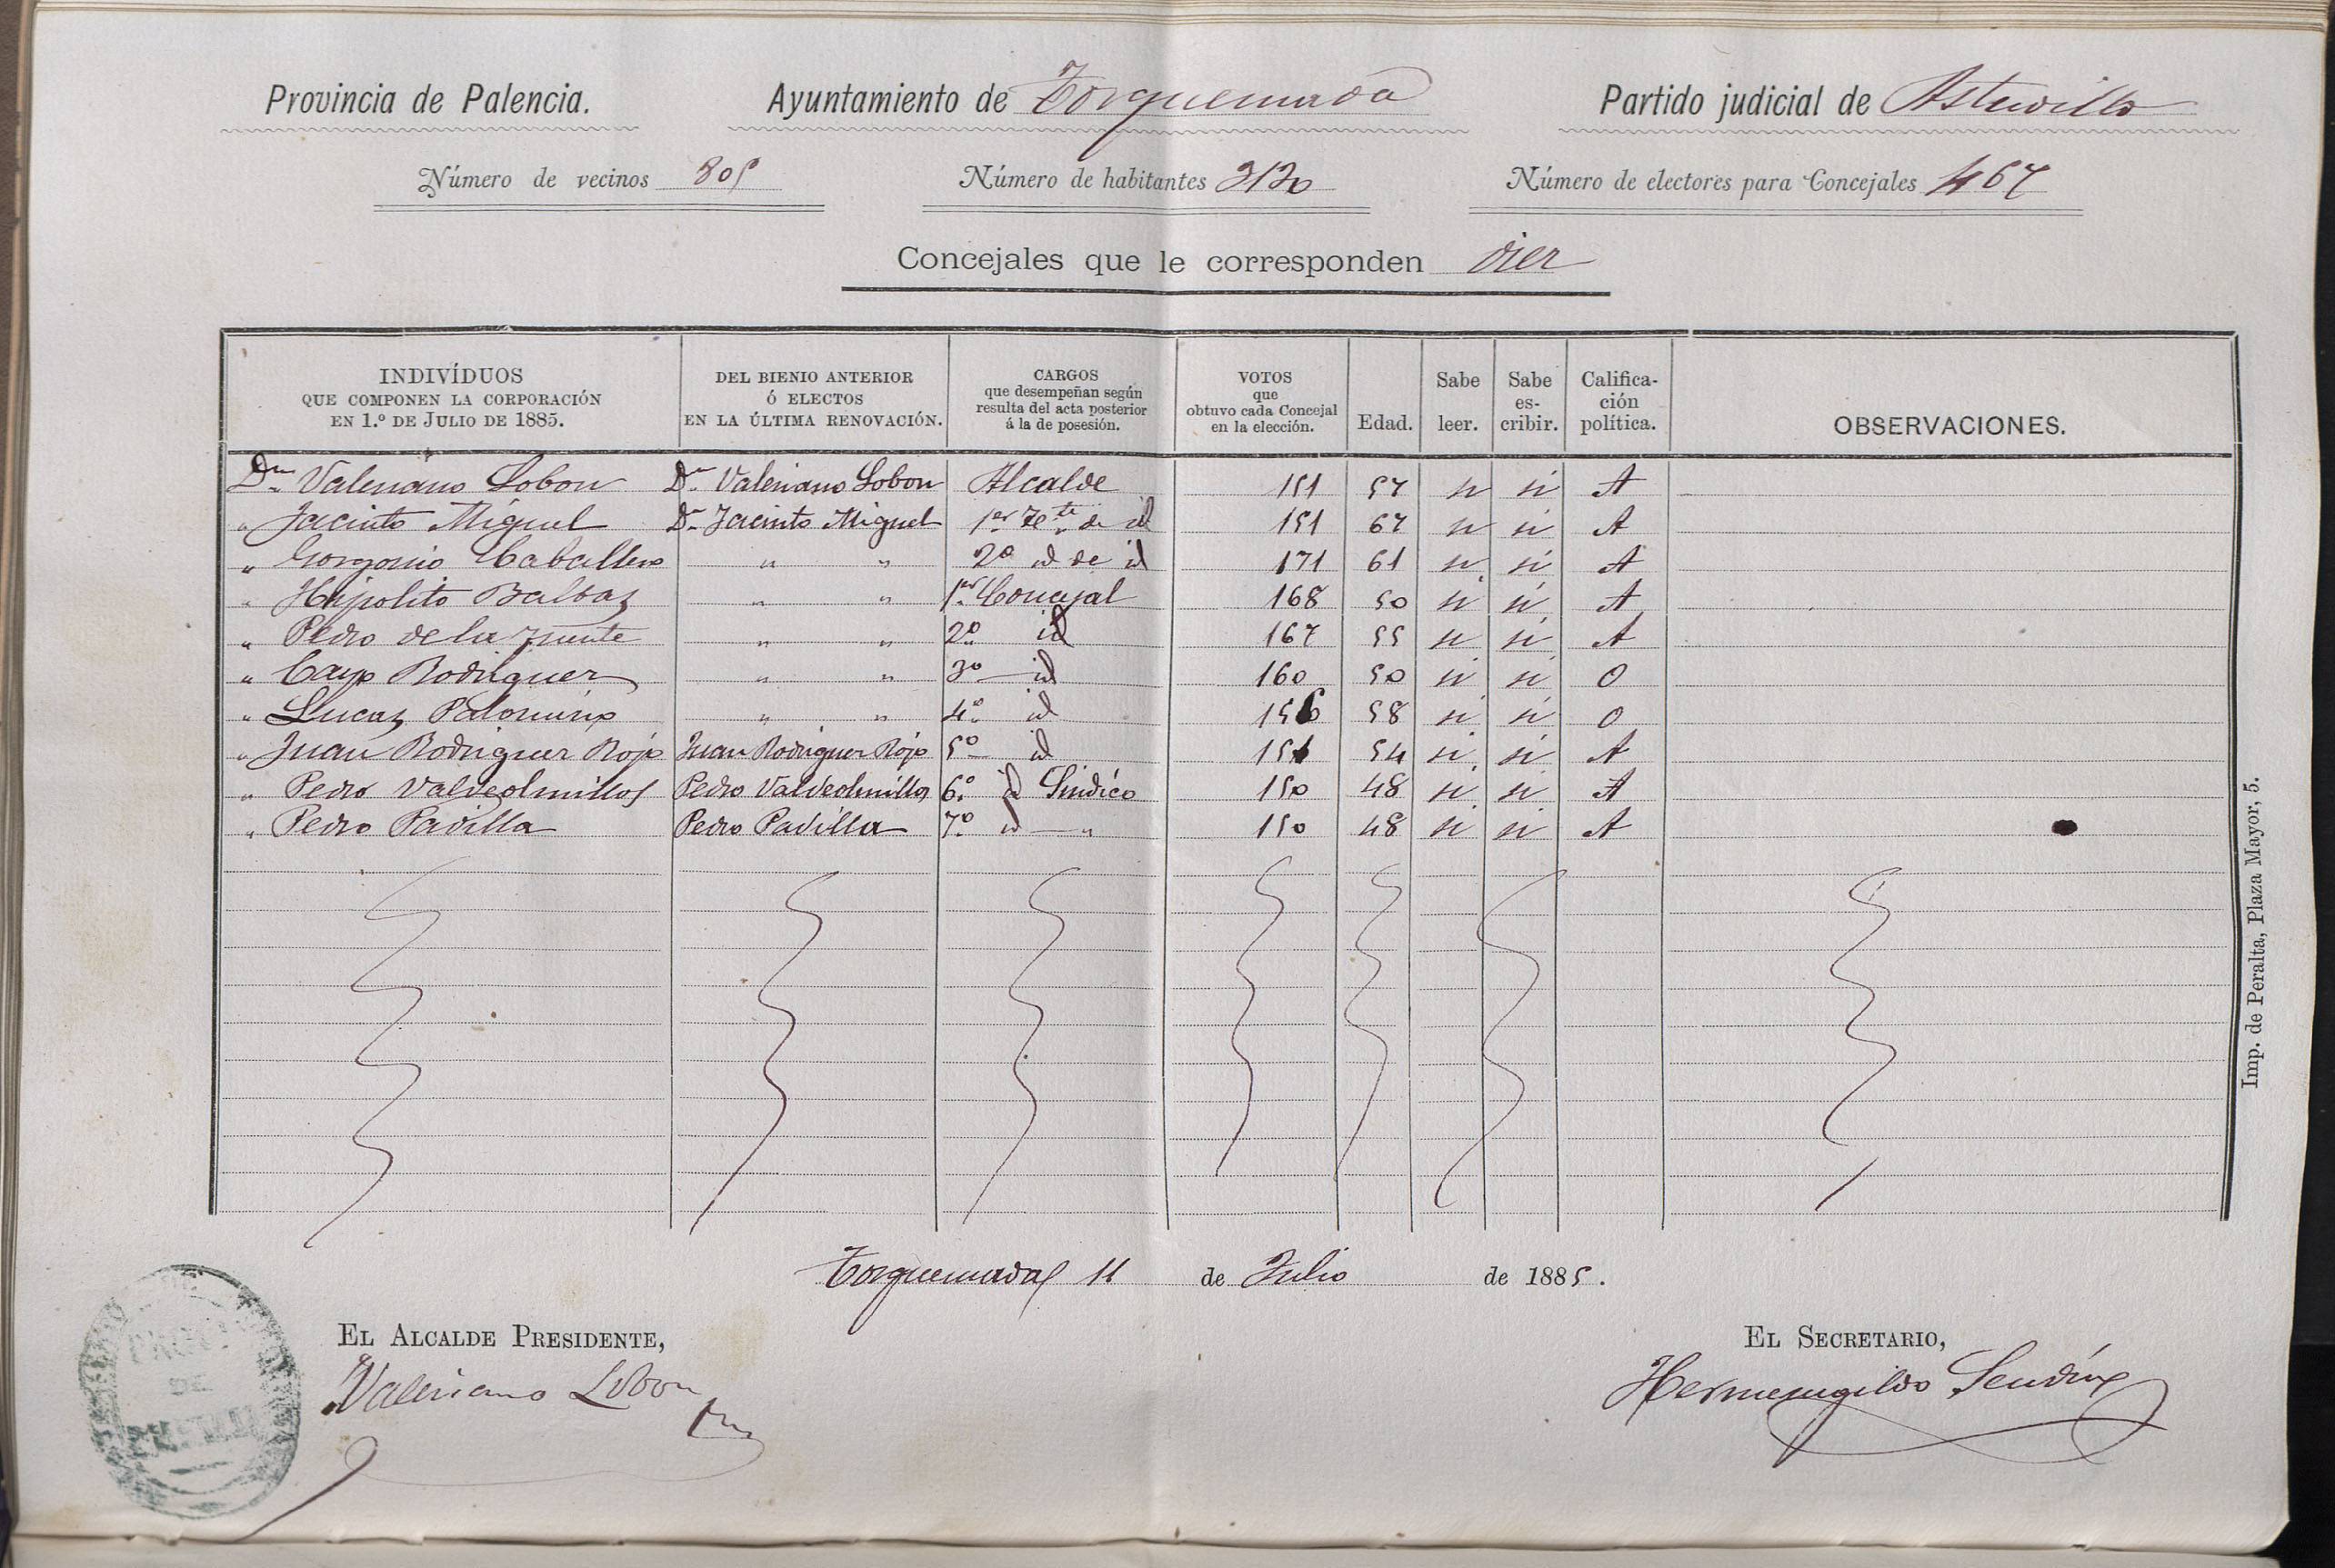 Provincia de Palencia. Ayuntamiento de Torquemada Partido judicial de Astudillo
Número de vecinos 805 Número de habitantes 3130 Número de electores para Concejales 467
Concejales que le corresponden diez
INDIVÍDUOS QUE COMPONEN LA CORPORACIÓN EN 1.º DE JULIO DE 1885. DEL BIENIO ANTERIOR Ó ELECTOS EN LA ÚLTIMA RENOVACIÓN. CARGOS que desempeñan según resulta del acta posterior á la de posesión. VOTOS que obtuvo cada Concejal en la elección. Edad. Sabe leer. Sabe es-cribir. Califica-ción política. OBSERVACIONES.
Dn Valeriano Lobon Dn Valeriano Lobon Alcalde 151 57 si si A
" Jacinto Miguel Dn Jacinto Miguel 1er Te.te de id 151 67 si si A
" Gorgonio Caballero " " 2º id de id 171 61 si si A
" Hipolito Balbas " " 1er Concejal 168 50 si si A
" Pedro de la Fuente " " 2º id 167 55 si si A
" Cayo Rodriguez " " 3º id 160 50 si si O
" Lucas Palomino " " 4º id 156 58 si si O
" Juan Rodriguez Rojo Juan Rodriguez Rojo 5º id 151 54 si si A
" Pedro Valdeolmillos Pedro Valdeolmillos 6º id Sindico 150 48 si si A
" Pedro Padilla Pedro Padilla 7º id " 150 48 si si A
Torquemada 11 de Julio de 1885.
EL ALCALDE PRESIDENTE, EL SECRETARIO,
Valeriano Lobon Hermenegildo Sendino
DE
Imp. de Peralta, Plaza Mayor, 5.